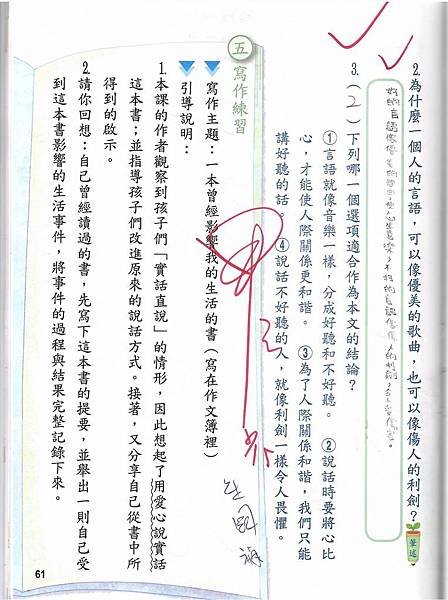 2.為什麼一個人的言語，可以像優美的歌曲，也可以像傷人的利劍？筆述
好的言語像優美的歌曲，
3.（2）下列哪一個選項適合作為本文的結論？
①言語就像音樂一樣，分成好聽和不好聽。　②說話時要將心比
心，才能使人際關係更和諧。　③為了人際關係和諧，我們只能
講好聽的話。　④說話不好聽的人，就像利劍一樣令人畏懼。
五 寫作練習
▼寫作主題：一本曾經影響我的生活的書（寫在作文簿裡）
▼引導說明：
1.本課的作者觀察到孩子們「實話直說」的情形，因此想起了用愛心說實話
這本書；並指導孩子們改進原來的說話方式。接著，又分享自己從書中所
得到的啟示。
2.請你回想：自己曾經讀過的書，先寫下這本書的提要，並舉出一則自己受
到這本書影響的生活事件，將事件的過程與結果完整記錄下來。
61